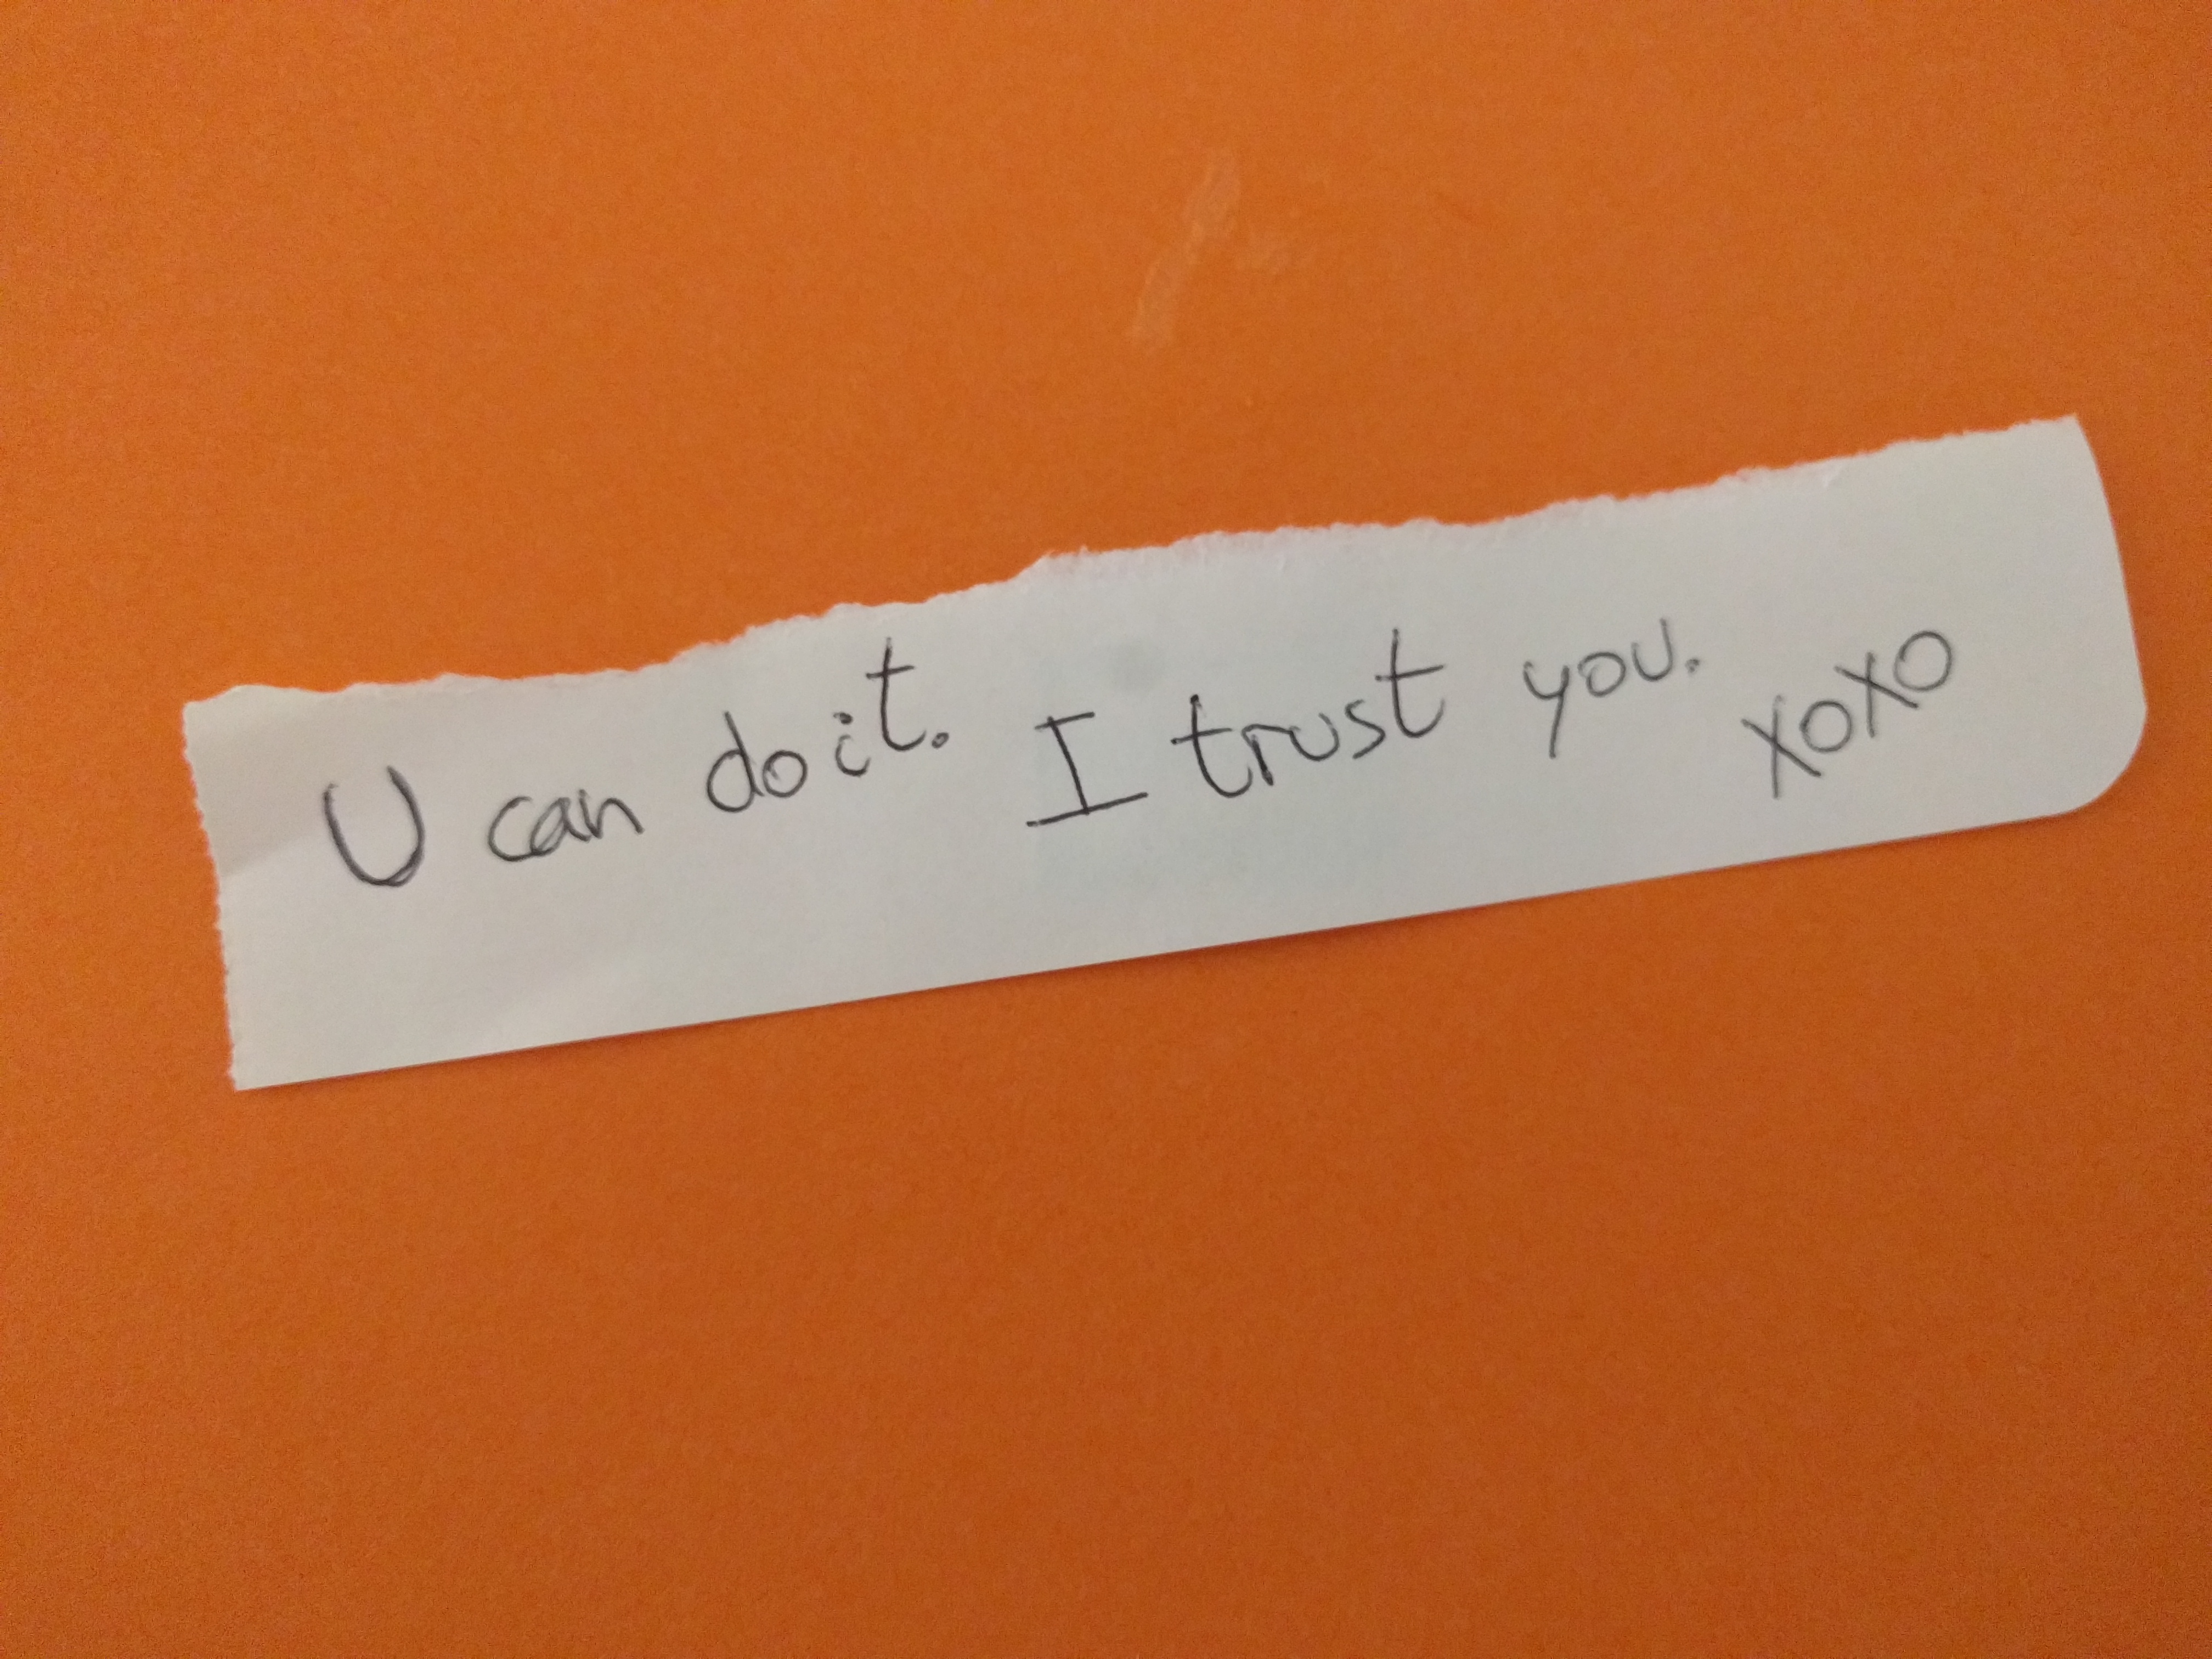 U can do it. I trust you. XOXO